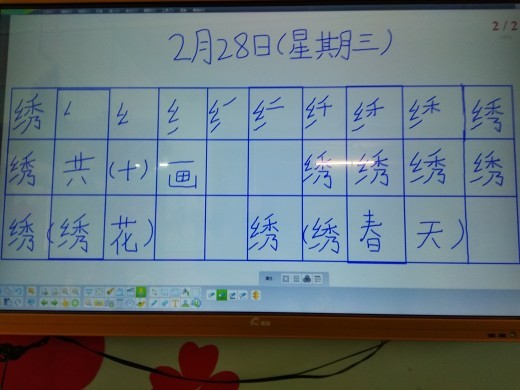 2/2
2月28日(星期三)
绣 纟 纟 纟 纟 绣 绣
绣 共(十)画 绣 绣 绣 绣
绣(绣花) 绣(绣春天)